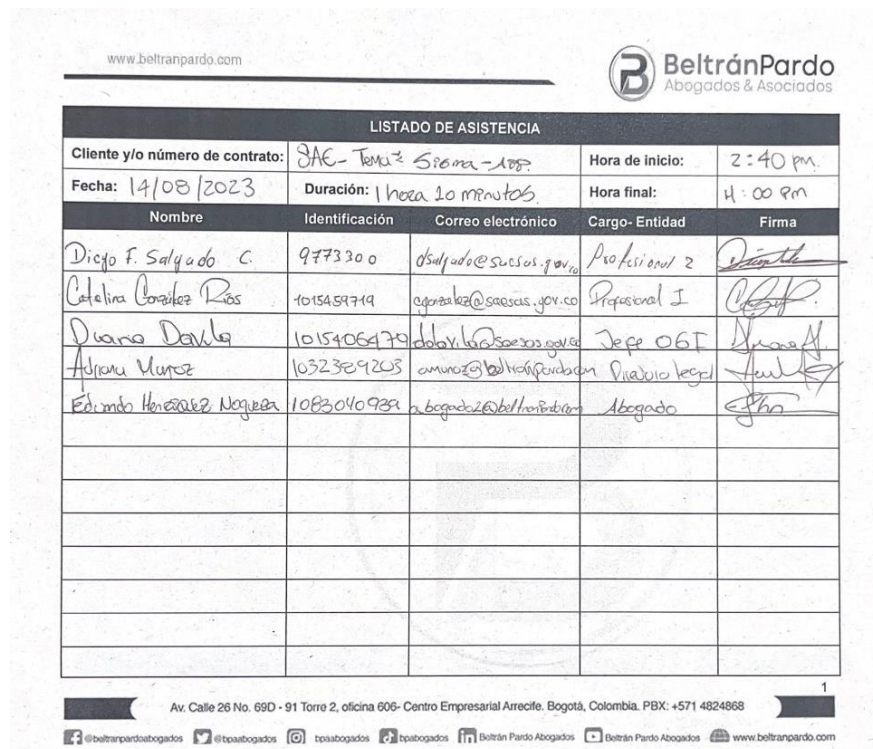 www.beltranpardo.com
BeltránPardo
Abogados & Asociados
LISTADO DE ASISTENCIA
Cliente y/o número de contrato: SAE- Sigma - Hora de inicio: 2:40 pm.
Fecha: 14/08/2023 Duración: 1 hora 20 minutos. Hora final: 4:00 pm
Nombre Identificación Correo electrónico Cargo- Entidad Firma
Diego F. Salgado C. 9773300 Profesional 2
Catalina González Ríos 1015459719 cgonzalez@saesas.gov.co Profesional I
Diana Davila 1015406479 Jefe OGI
Adriana Muñoz 1032389203 legal
Edimdo Noguera 1083040939 Abogado
1
Av. Calle 26 No. 69D - 91 Torre 2, oficina 606- Centro Empresarial Arrecife. Bogotá, Colombia. PBX: +571 4824868
@beltranpardoabogados @bpaabogados bpaabogados bpabogados Beltrán Pardo Abogados Beltrán Pardo Abogados www.beltranpardo.com